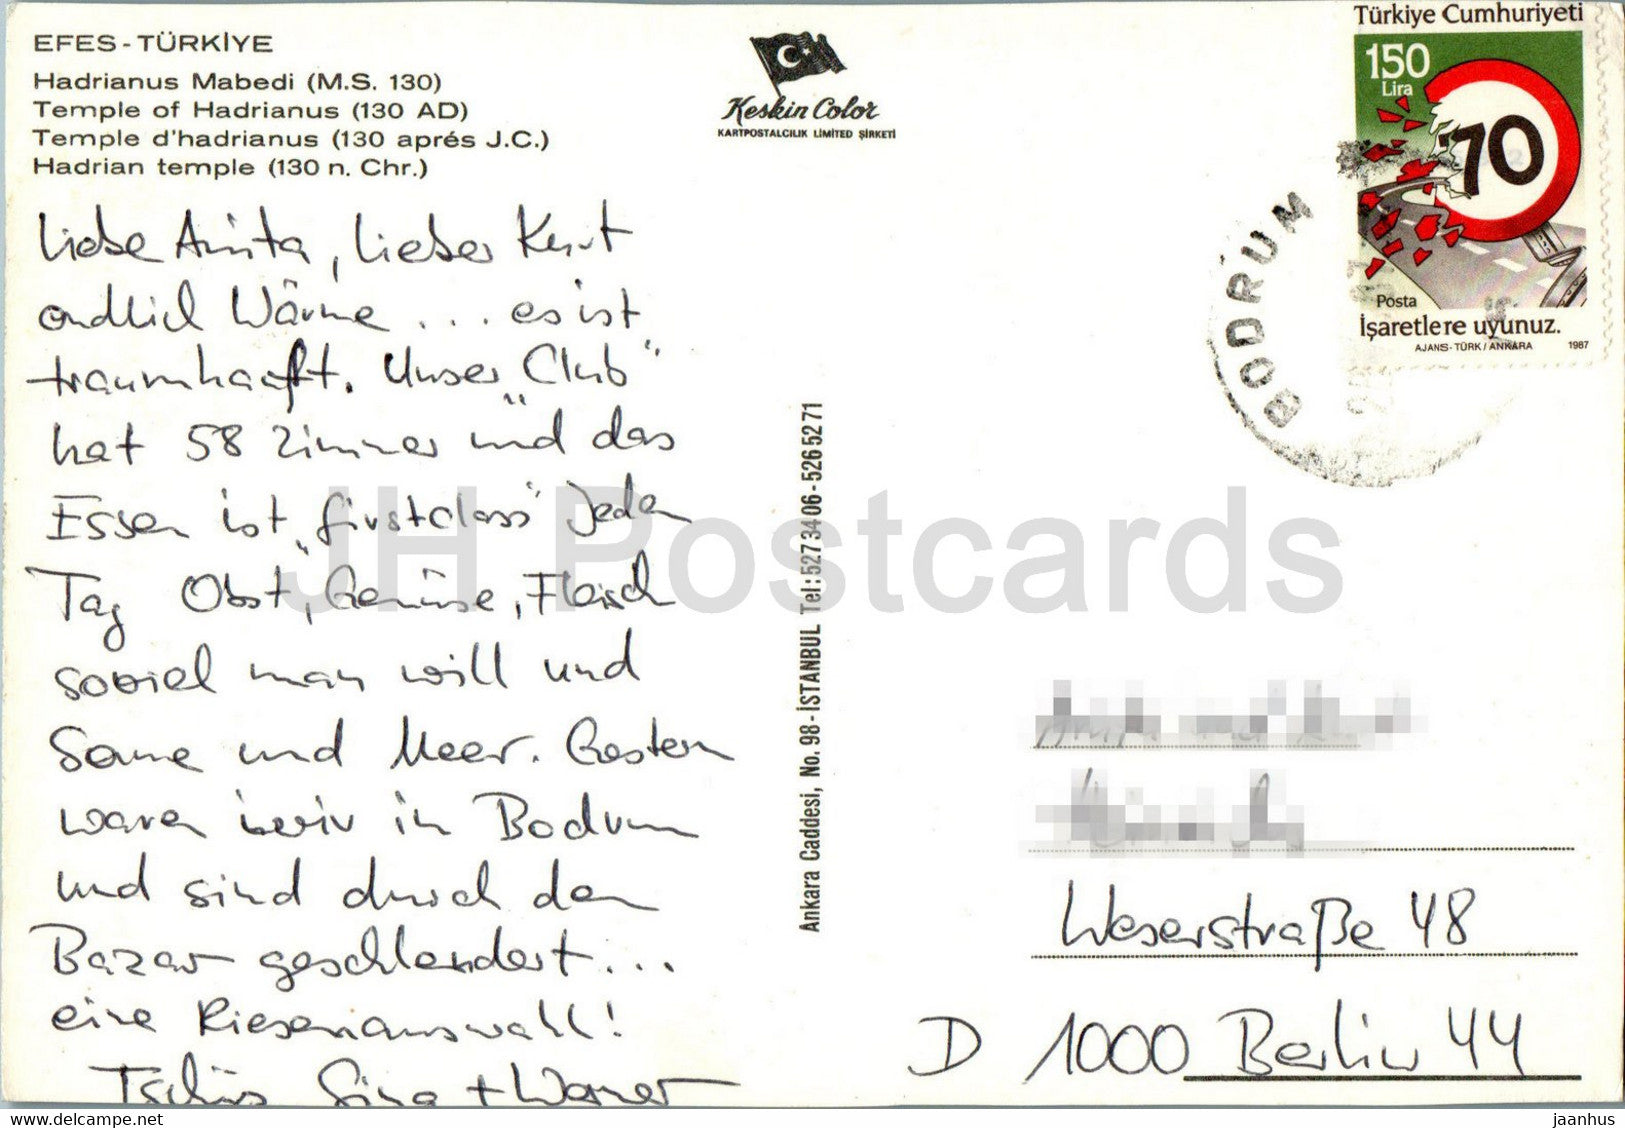 EFES - TÜRKİYE
Hadrianus Mabedi (M.S. 130)
Temple of Hadrianus (130 AD)
Temple d'hadrianus (130 aprés J.C.)
Hadrian temple (130 n. Chr.)
Liebe Anita, lieber Kurt
endlich Wärme ... es ist
traumhaft. Unser „Club"
hat 58 Zimmer und das
Essen ist „firstclass" Jeden
Tag Obst, Gemüse, Fleisch
soviel man will und
Sonne und Meer. Gestern
waren wir in Bodrum
und sind durch den
Bazar geschlendert...
eine Riesenauswahl!
Tschüs Gina + Werner
Keskin Color
KARTPOSTALCILIK LIMITED ŞİRKETİ
Ankara Caddesi, No. 98 - İSTANBUL Tel: 527 34 06 - 526 52 71
Türkiye Cumhuriyeti
150
Lira
70
Posta
İşaretlere uyunuz.
AJANS - TÜRK / ANKARA 1987
BODRUM
Weserstraße 48
D 1000 Berlin 44
JH Postcards
jaanhus
delcampe.net